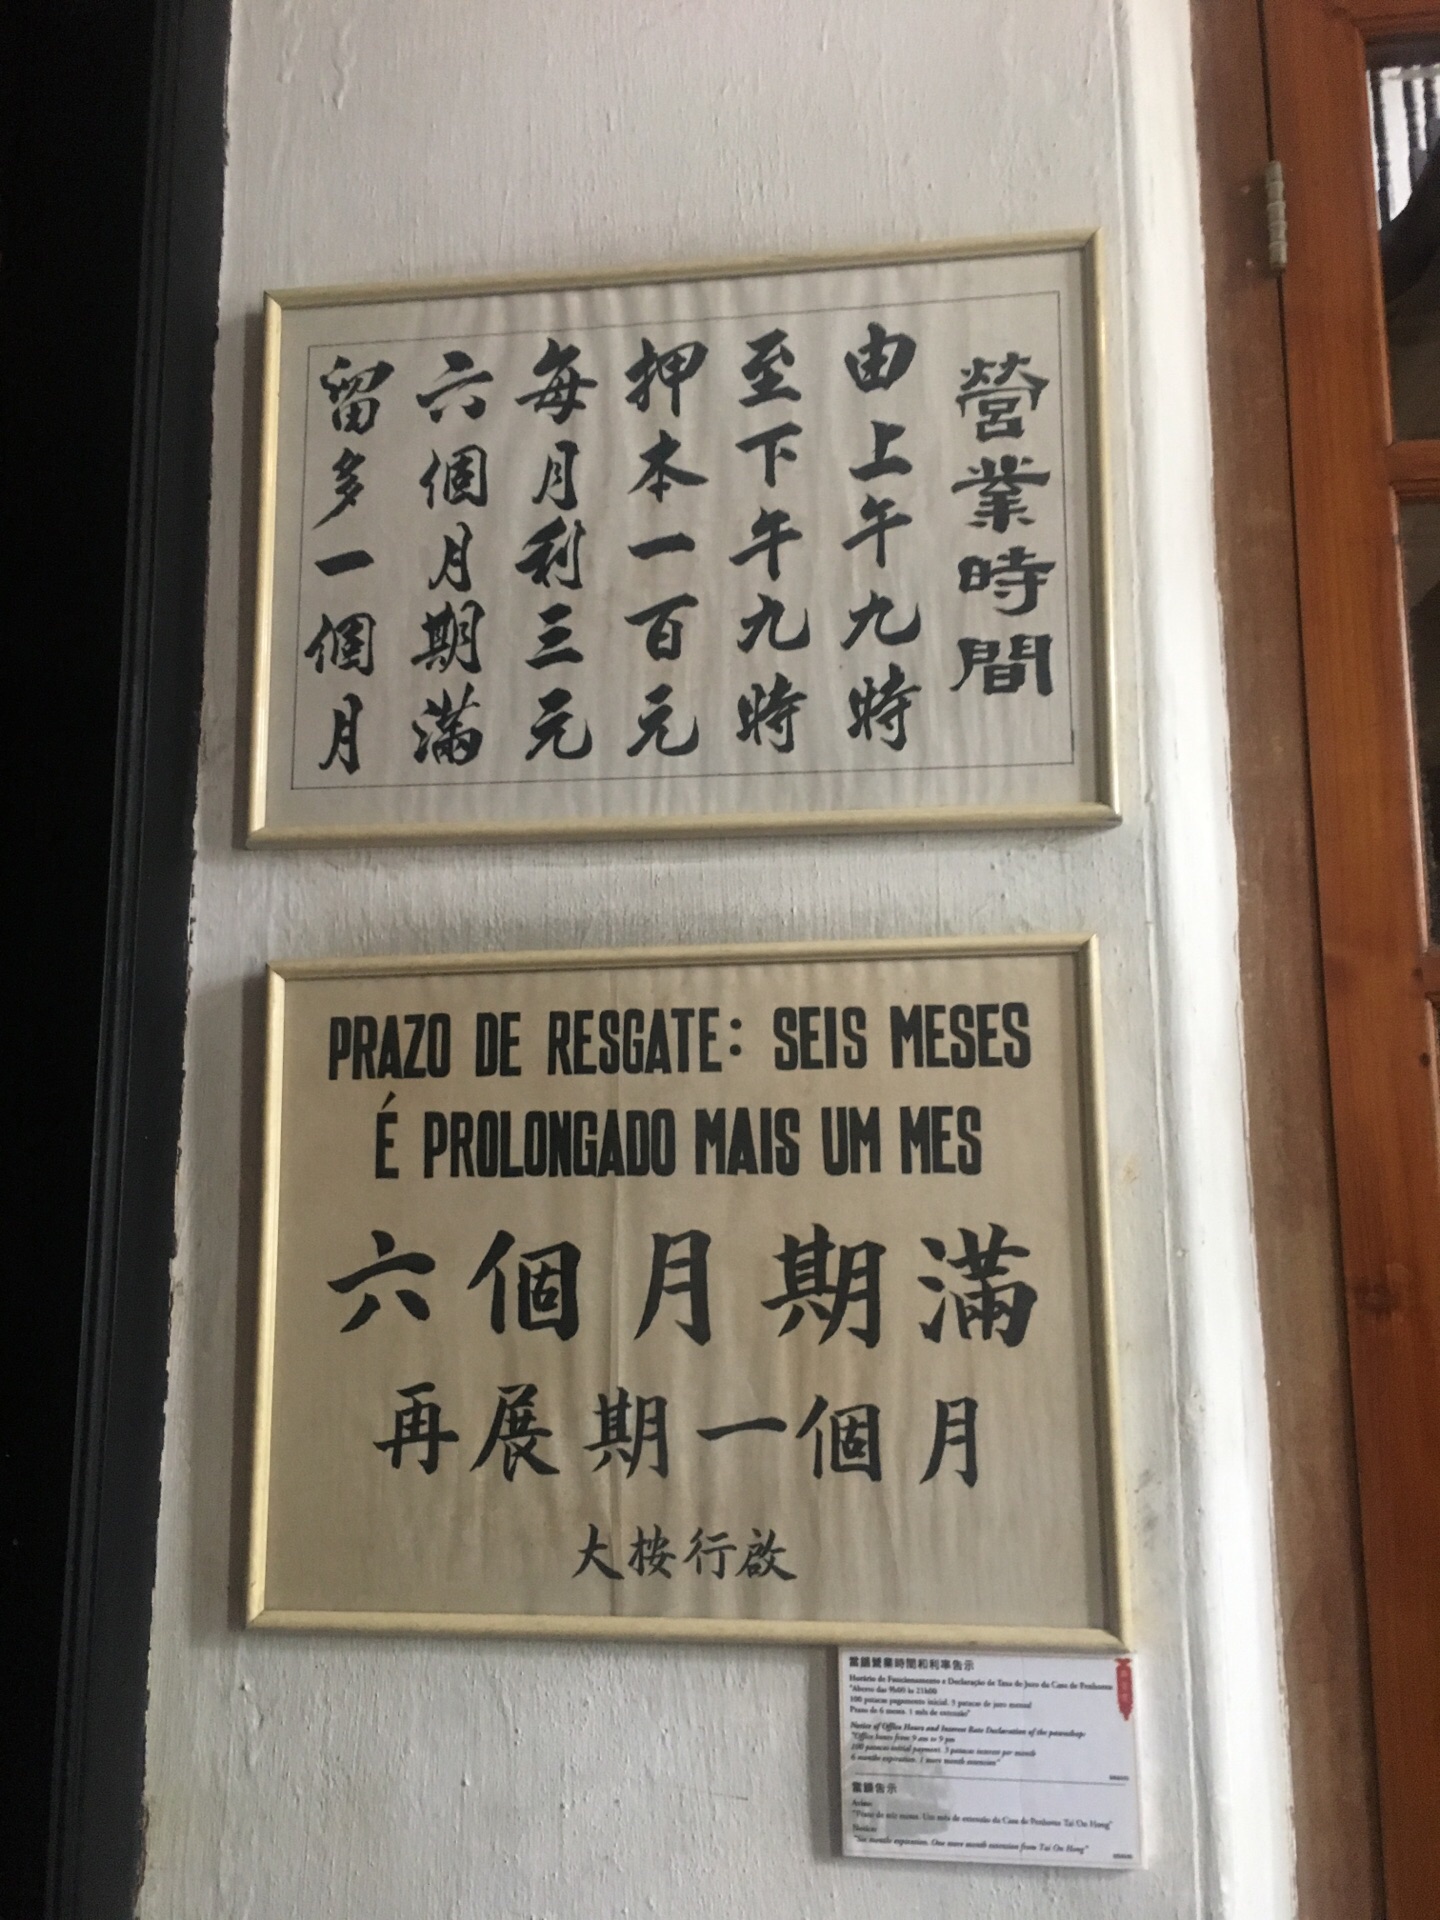 營業時間
由上午九時
至下午九時
押本一百元
每月利三元
六個月期滿
留多一個月
PRAZO DE RESGATE: SEIS MESES
É PROLONGADO MAIS UM MES
六個月期滿
再展期一個月
大桉行啟
當舖營業時間和利率告示
Horário de Funcionamento e Declaração de Taxa de Juro da Casa de Penhores
"Aberto das 9h00 às 21h00
100 patacas pagamento inicial. 3 patacas de juro mensal
Prazo de 6 meses. 1 mês de extensão"
Notice of Office Hours and Interest Rate Declaration of the pawnshop:
"Office hours from 9 am to 9 pm
100 patacas initial payment. 3 patacas interest per month
6 months expiration. 1 more month extension"
當舖告示
Aviso:
"Prazo de seis meses. Um mês de extensão da Casa de Penhores Tai On Hong"
Notice:
"Six months expiration. One more month extension from Tai On Hong"